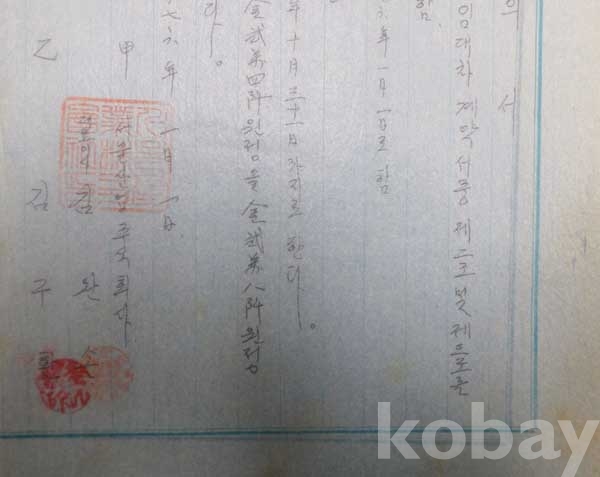 의 서
임대차 계약서중 제二조 및 제三조를
함.
六年 一月 一日로 함
年 十月 三十一日 까지로 한다.
金貳萬四阡원정을 金貳萬八阡원정
다.
七六年 一月 一日.
甲 서울산업주식회사
김 완
乙 김 구
kobay